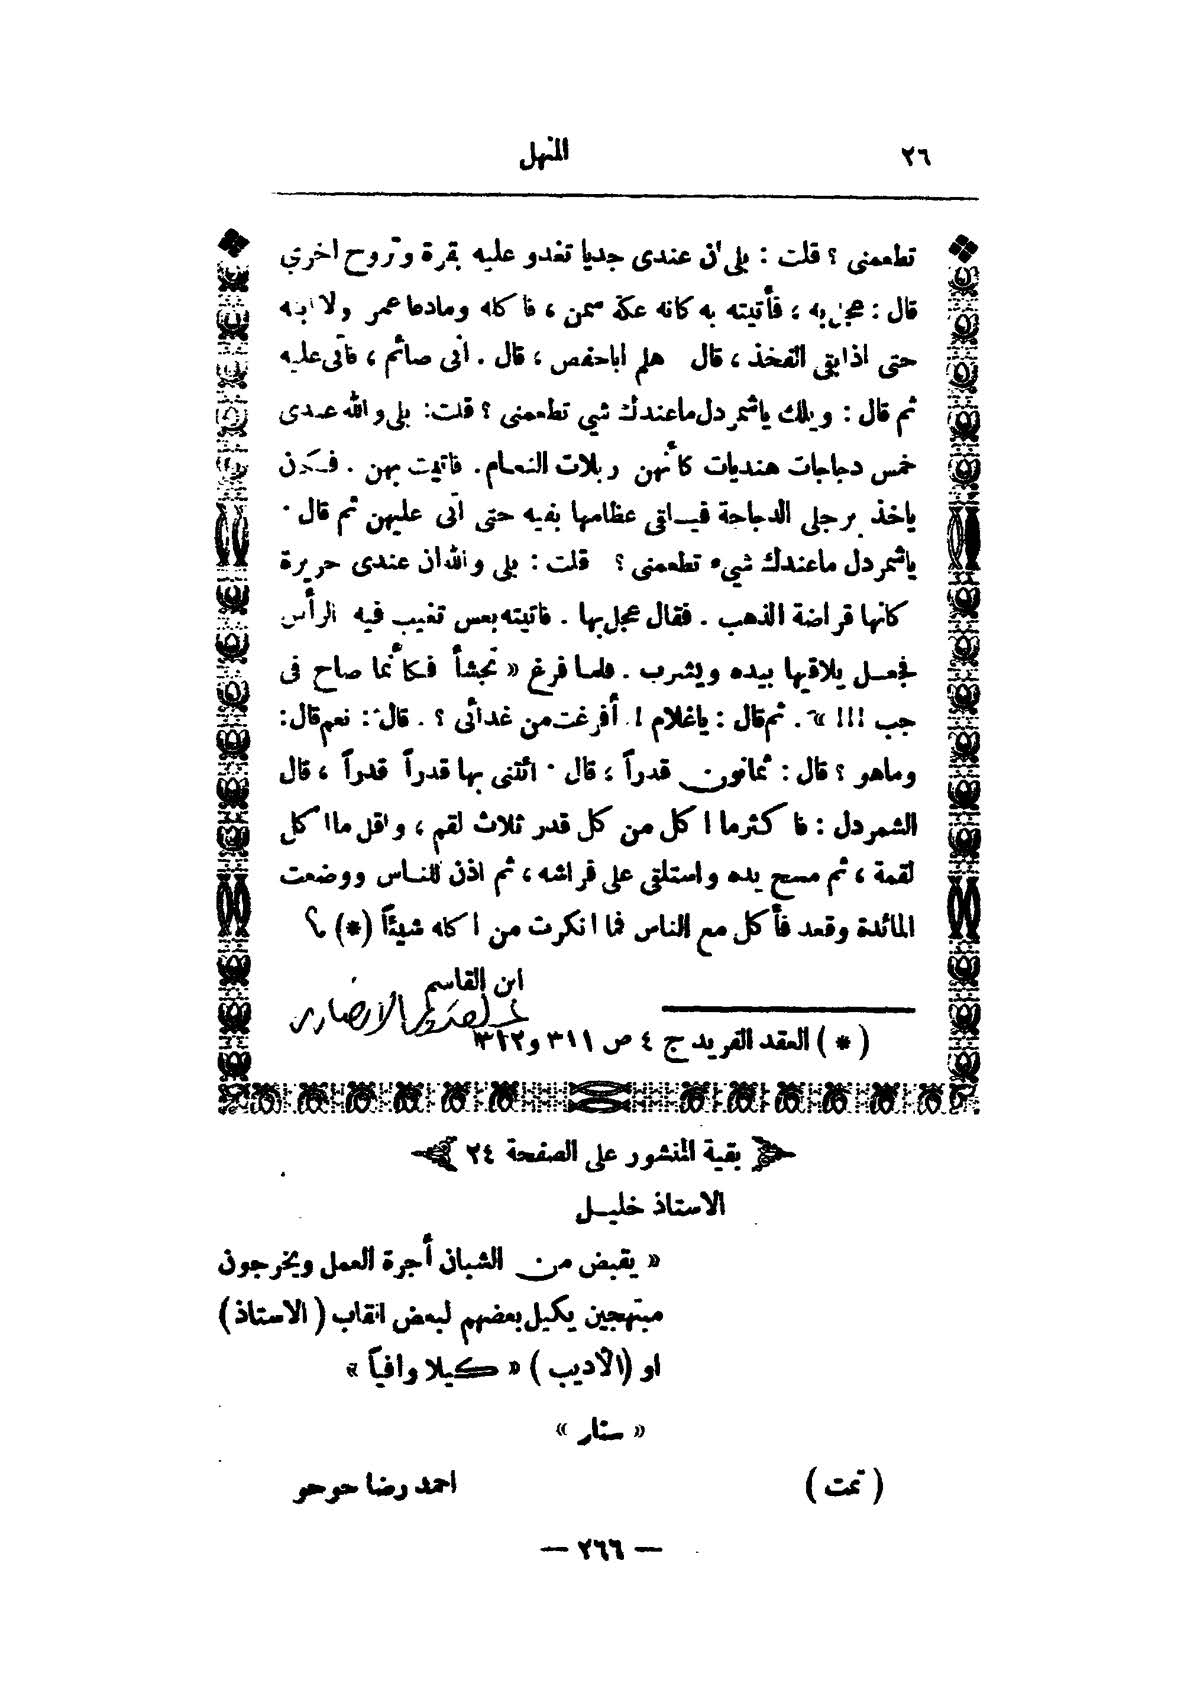 ٢٦ المنهل
تطعمنى ؟ قلت : بلى ان عندى جديا تغدو عليه بقرة وتروح اخرى
قال : عجل به ، فأتيته به كانه عكة سمن ، فاكله ومادعا عمر ولا ابنه
حتى اذا بقى الفخذ ، قال هلم اباحفص ، قال . انى صائم ، فاتى عليه
ثم قال : ويلك ياشمردل ماعندك شي تطعمنى ؟ قلت: بلى والله عندى
خمس دجاجات هنديات كأنهن ربلات النعام . فاتيت بهن . فكان
ياخذ برجلى الدجاجة فيلقى عظامها بفيه حتى اتى عليهن ثم قال .
ياشمردل ماعندك شيء تطعمنى ؟ قلت : بلى والله ان عندى حريرة
كانها قراضة الذهب . فقال عجل بها . فاتيته بعس تغيب فيه الرأس
فجعل يلاقيها بيده ويشرب . فلما فرغ « تجشأ فكأنما صاح فى
جب !!! » . ثم قال : ياغلام ! أفرغت من غدائى ؟ . قال : نعم قال :
وماهو ؟ قال : ثمانون قدراً ، قال . ائتنى بها قدراً قدراً ، قال
الشمردل : فاكثر ما اكل من كل قدر ثلاث لقم ، واقل ما اكل
لقمة ، ثم مسح يده واستلقى على فراشه ، ثم اذن للناس ووضعت
المائدة وقعد فأكل مع الناس فما انكرت من اكله شيئاً (*) ؟
ابن القاسم
عبد القدوس الانصارى
( * ) العقد الفريد ج ٤ ص ٣١١ و٣١٢
بقية المنشور على الصفحة ٢٤
الاستاذ خليل
« يقبض من الشبان أجرة العمل ويخرجون
مبتهجين يكيل بعضهم لبعض القاب ( الاستاذ )
او (الأديب ) « كيلا وافياً »
« ستار »
( تمت ) احمد رضا حوحو
— ٢٦٦ —